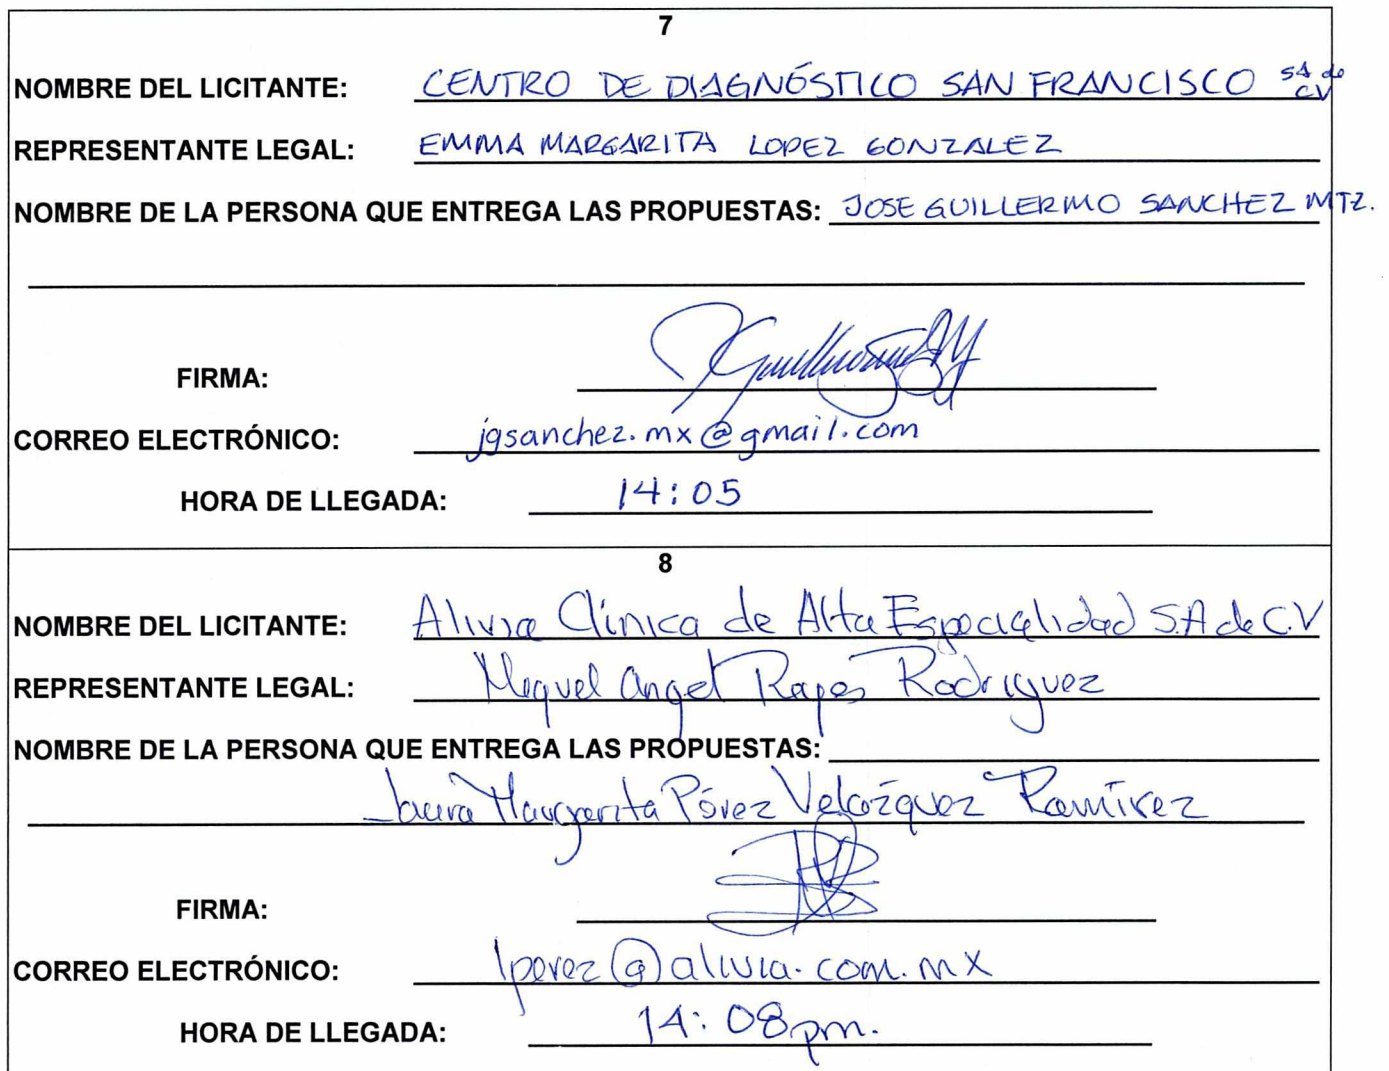 7
NOMBRE DEL LICITANTE: CENTRO DE DIAGNÓSTICO SAN FRANCISCO SA de CV
REPRESENTANTE LEGAL: EMMA MARGARITA LOPEZ GONZALEZ
NOMBRE DE LA PERSONA QUE ENTREGA LAS PROPUESTAS: JOSE GUILLERMO SANCHEZ MTZ.
FIRMA:
CORREO ELECTRÓNICO: jgsanchez.mx@gmail.com
HORA DE LLEGADA: 14:05
8
NOMBRE DEL LICITANTE: Alivia Clínica de Alta Especialidad S.A de C.V
REPRESENTANTE LEGAL: Miguel Angel Rodriguez
NOMBRE DE LA PERSONA QUE ENTREGA LAS PROPUESTAS:
Laura Margarita Pérez Velázquez Ramírez
FIRMA:
CORREO ELECTRÓNICO: lperez@alivia.com.mx
HORA DE LLEGADA: 14:08pm.